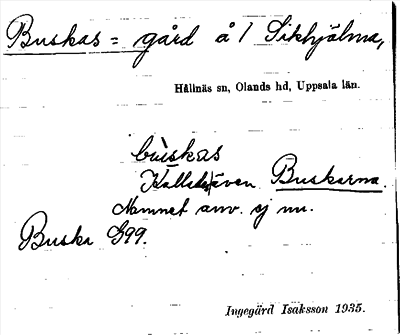 Buskas = gård å / Sikhjälma,
Hållnäs sn, Olands hd, Uppsala län.
bùskas
Kallades även Buskarna.
Namnet anv. ej nu.
Buska G99.
Ingegärd Isaksson 1935.